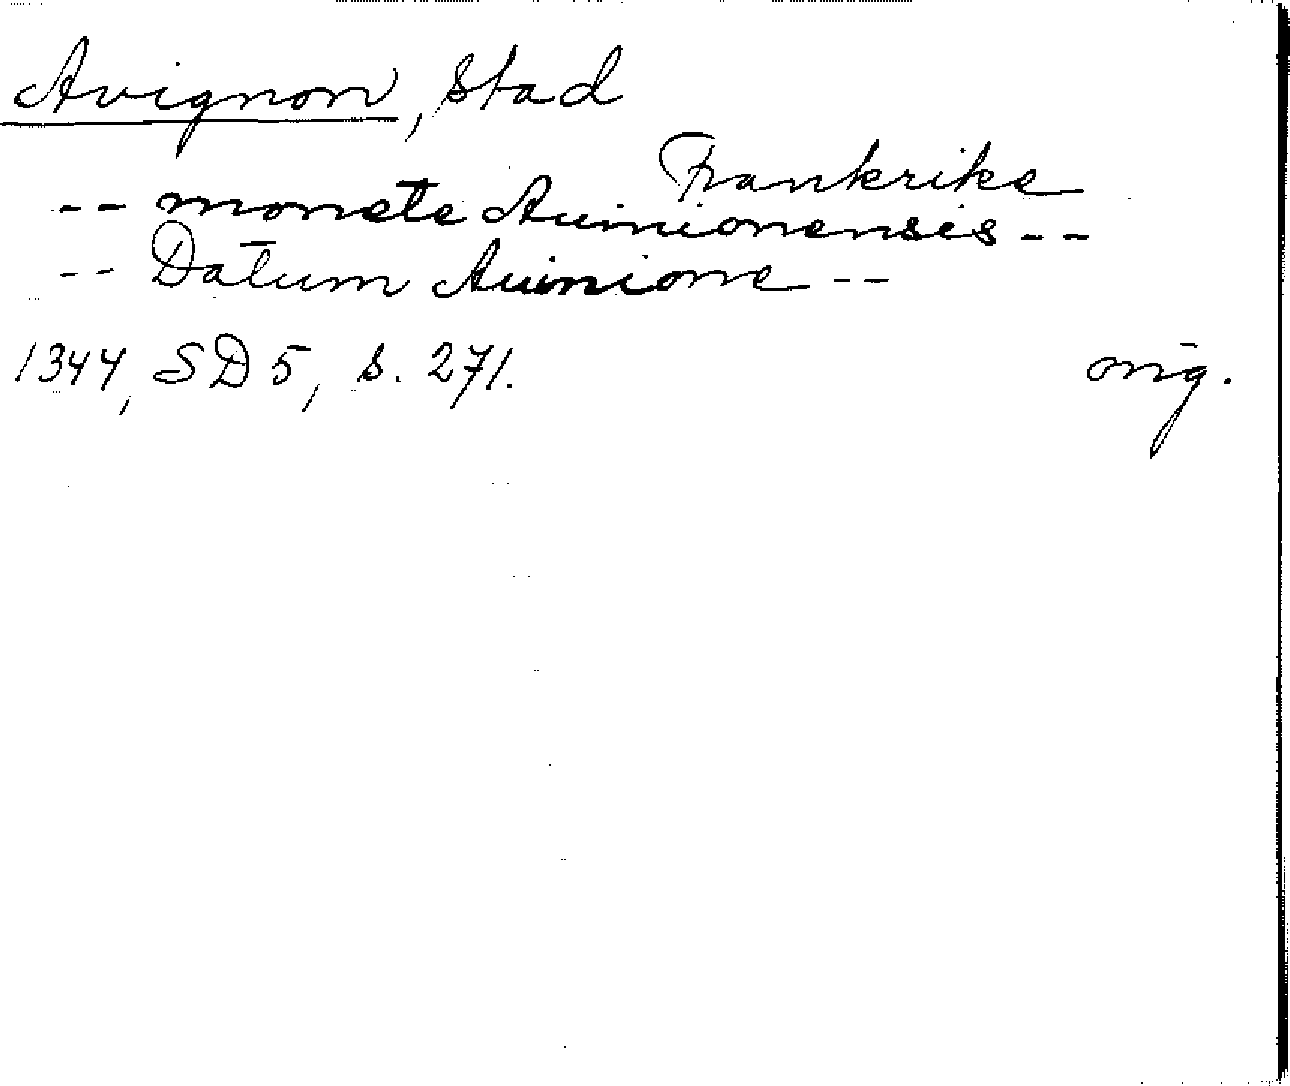 Avignon, Stad
Frankrike
-- monete Auinionensis --
-- Datum Auinione --
1344, SD 5, s. 271. orig.